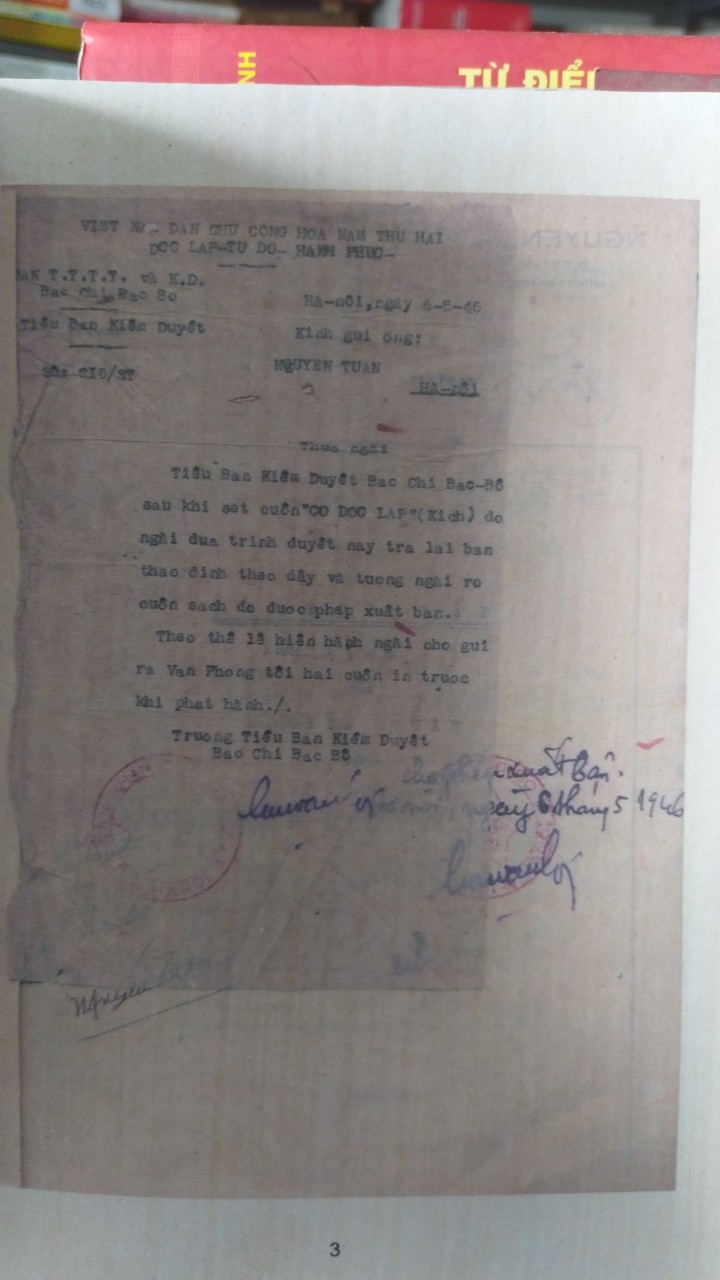 NH
TỪ ĐIỂ
NGUYEN
VIET NA DAN CHU CONG HOA NAM THU HAI
DOC LAP-TU DO- HANH PHUC-
AN T.T.T.T. và K.D.
Bao Chi Bac Bo
Tiểu Ban Kiểm Duyêt
Số: 216/ST
Hà-nôi,ngày 6-5-46
Kinh gui ông:
NGUYEN TUAN
Hà-nôi
Thua ngài
Tiểu Ban Kiểm Duyêt Bao Chi Bac-Bô
sau khi set cuôn"CO DOC LAP"(Kich) do
ngài dua trinh duyêt nay tra lai ban
thao dinh theo dây và tuong ngài ro
cuôn sach do duoc phép xuât ban.
Theo thê lê hiên hành ngài cho gui
ra Van Phong tôi hai cuôn in truoc
khi phat hành./.
Truong Tiểu Ban Kiểm Duyêt
Bao Chi Bac Bô
cho phép xuất bản.
ngày 6 tháng 5 1946
Nguyễn Tuân
3